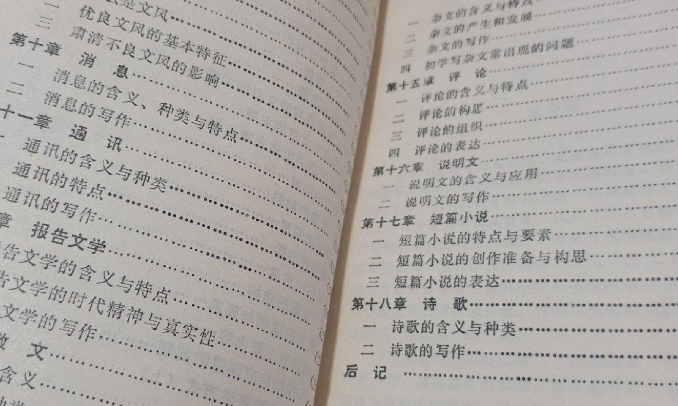 是文风
二 优良文风的基本特征
三 肃清不良文风的影响
第十章 消 息
一 消息的含义、种类与特点
二 消息的写作
十一章 通 讯
通讯的含义与种类
通讯的特点
通讯的写作
章 报告文学
告文学的含义与特点
告文学的时代精神与真实性
文学的写作
散 文
含义
一 杂文的含义与特点
二 杂文的产生和发展
三 杂文的写作
四 初学写杂文常出现的问题
第十五章 评 论
一 评论的含义与特点
二 评论的构思
三 评论的组织
四 评论的表达
第十六章 说明文
一 说明文的含义与应用
二 说明文的写作
第十七章 短篇小说
一 短篇小说的特点与要素
二 短篇小说的创作准备与构思
三 短篇小说的表达
第十八章 诗 歌
一 诗歌的含义与种类
二 诗歌的写作
后 记